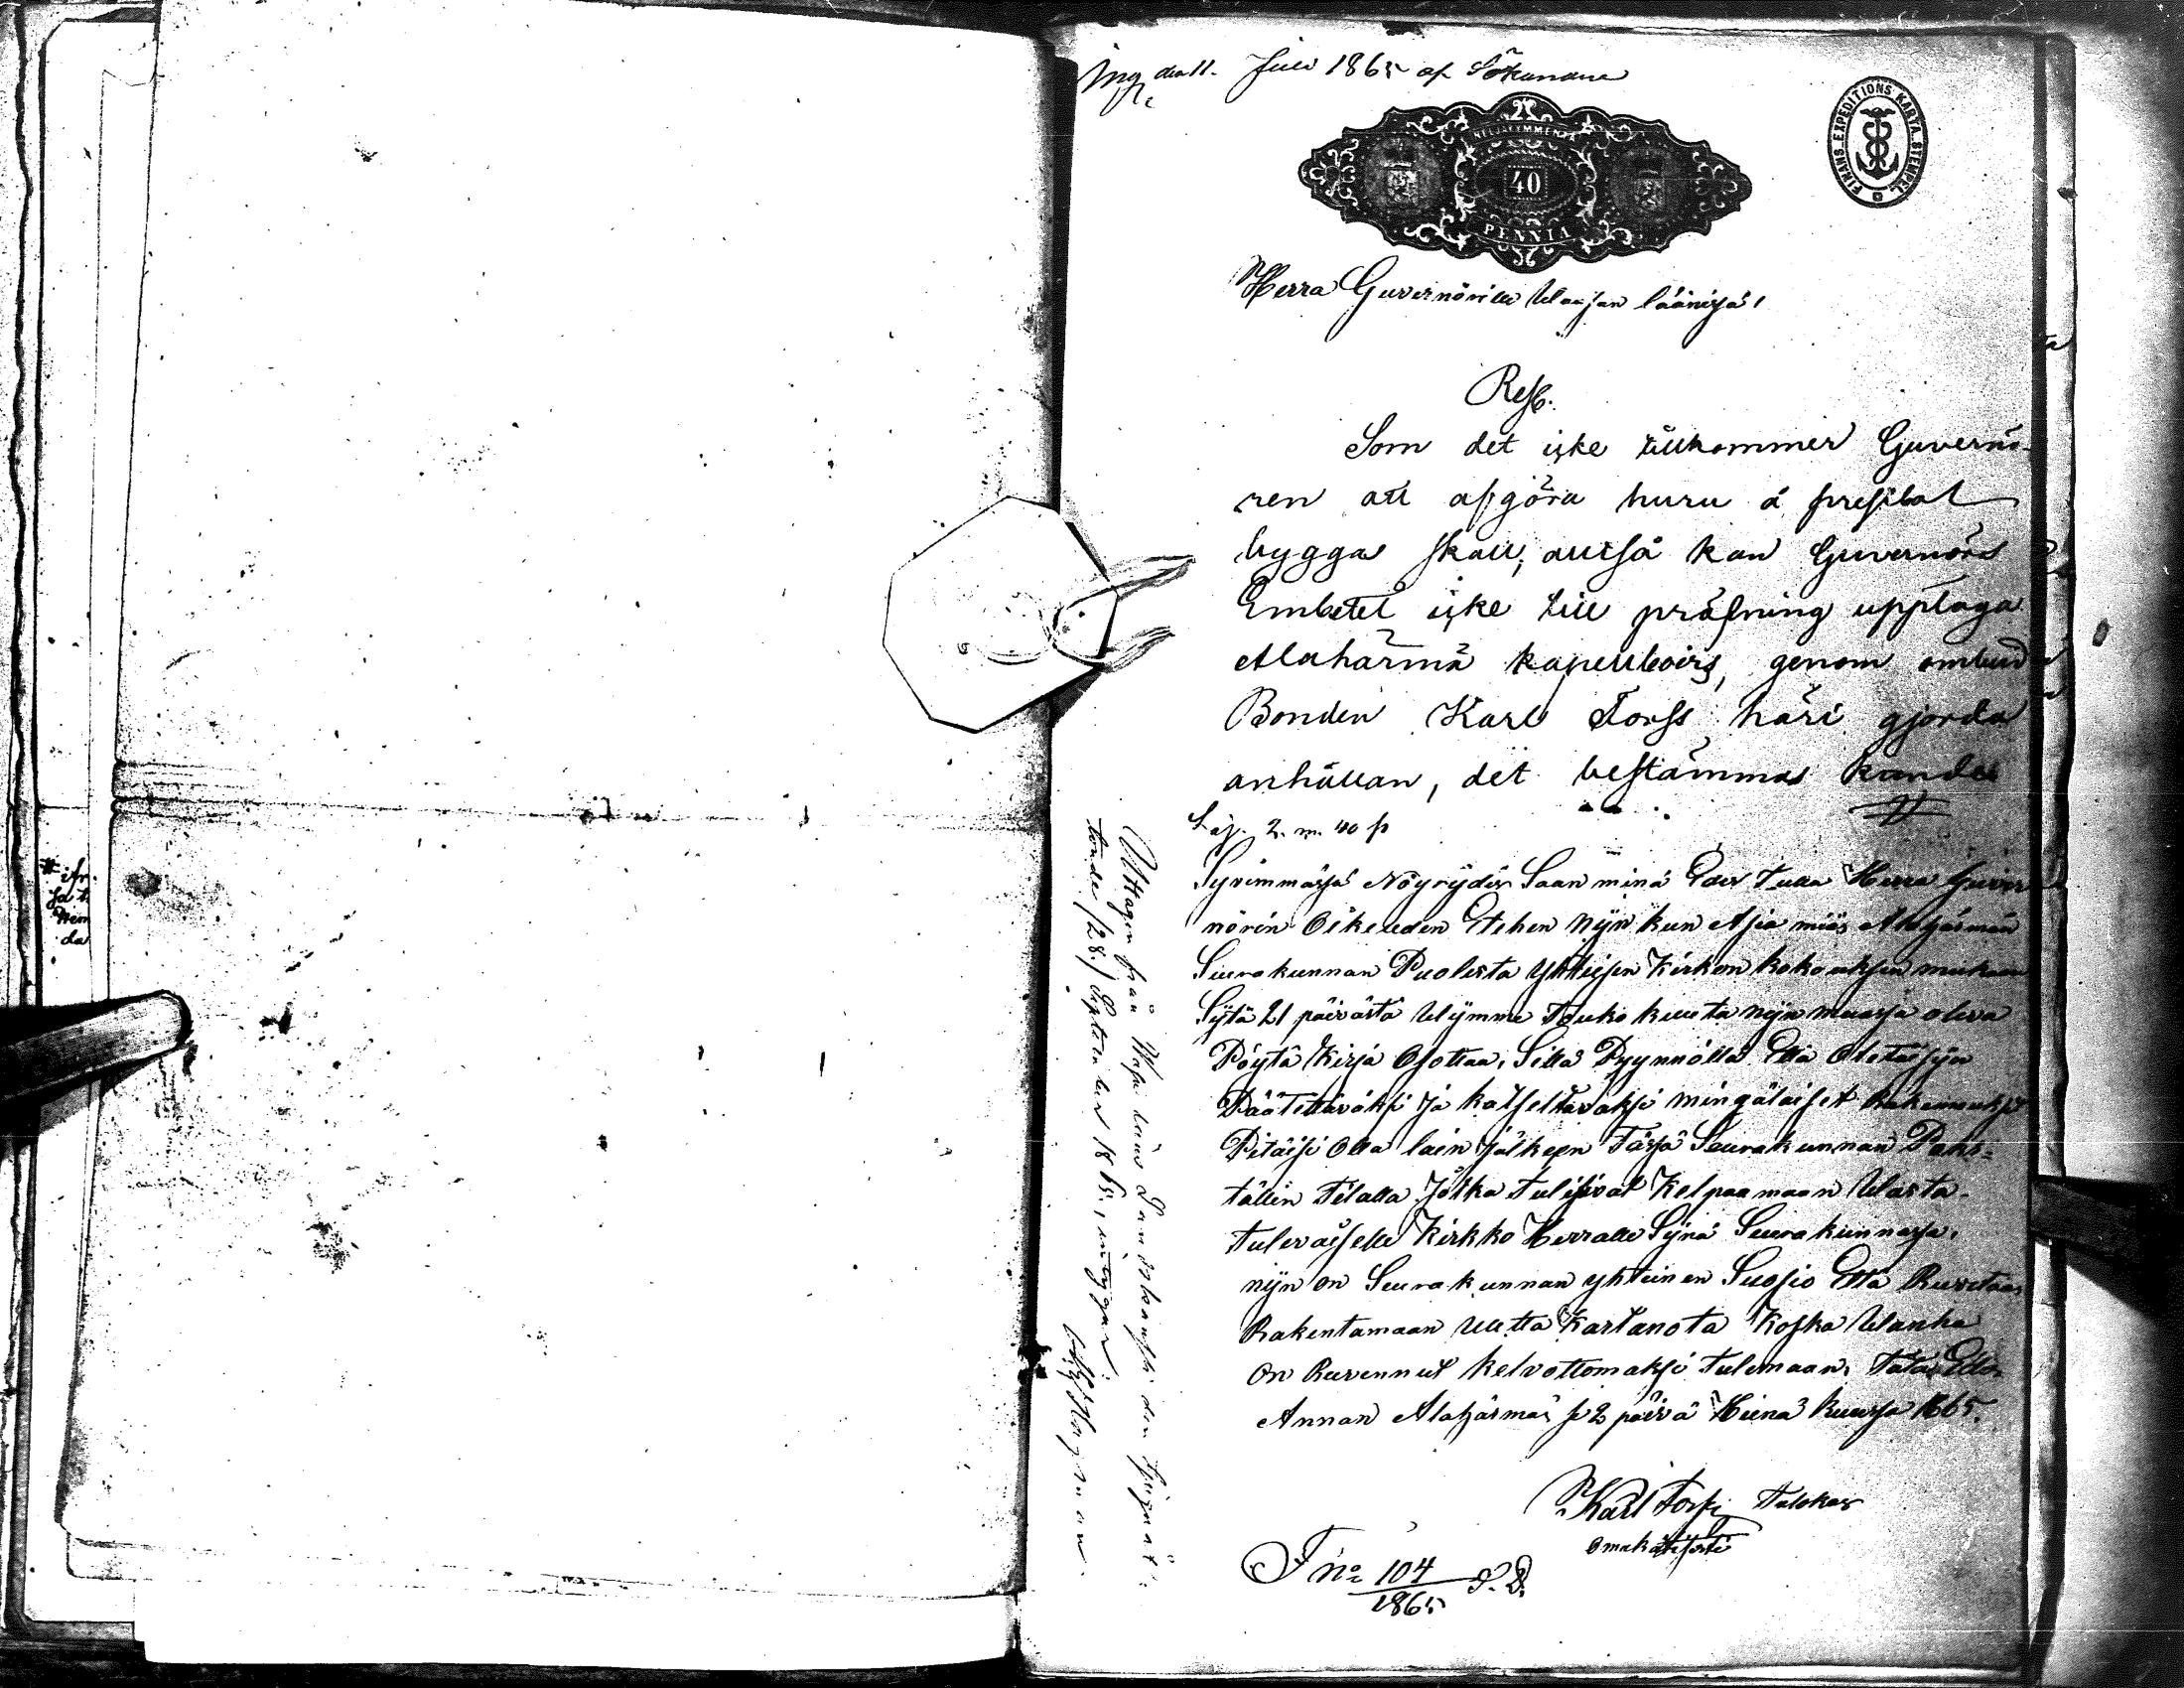 Ing. den 11. Juli 1865 af Sökanden
NELJÄKYMMENTÄ
40
PENNIÄ
FINANS. EXPEDITIONS. KARTA. STEMPEL.
Herra Guvernörille Waasan läänisä!
Resl.
Som det icke tillkommer Guvernö-
ren att afgöra huru å prestbol
byggas skall; alltså kan Guvernörs
Embetet icke till pröfning upptaga
Alahärmä kapellboers, genom ombud
Bonden Karl Torss häri gjorda
anhållan, det bestämmas kunde
Lös. 2. m. 40 p
Syvimmäsä Nöyrydes Saan minä Eder tulla Herra Guver
nörin Oikeuden Etehen Nijn kun Asia miäs Alahärmän
Seurakunnan Puolesta yhteisen Kirkon kokouksen mukaan
Sijtä 21 päivästä Wijmme Touko kuuta nijn muasa oleva
Pöytä Kirja Osottaa, Sillä Pyynnöllä Että Otetaisijn
Päätettäväksi ja katseltavaksi mingälaiset Rakennukset
Pitäisi Olla lain jälkeen Täsä Seurakunnan Pais-
tällin Tilalla Jotka tulisivat Kelpaamaan Wasta-
tulevaiselle Kirkko Herralle Sijnä Seurakunnasa,
nijn on Seurakunnan yhteinen Suosio Että Ruvetaan
Rakentamaan Uutta Kartanota Koska Wanha
on Ruvennut kelvottomaksi Tulemaan,
Annan Alahärmäs se 2 päivä Heinä kuusa 1865.
Karl Torsti Talokas
omakätisesti
F no 104
1865
Uttagen från Wasa läns Landskansli den tjuguåt-
tonde /28./ September 1865, intygar